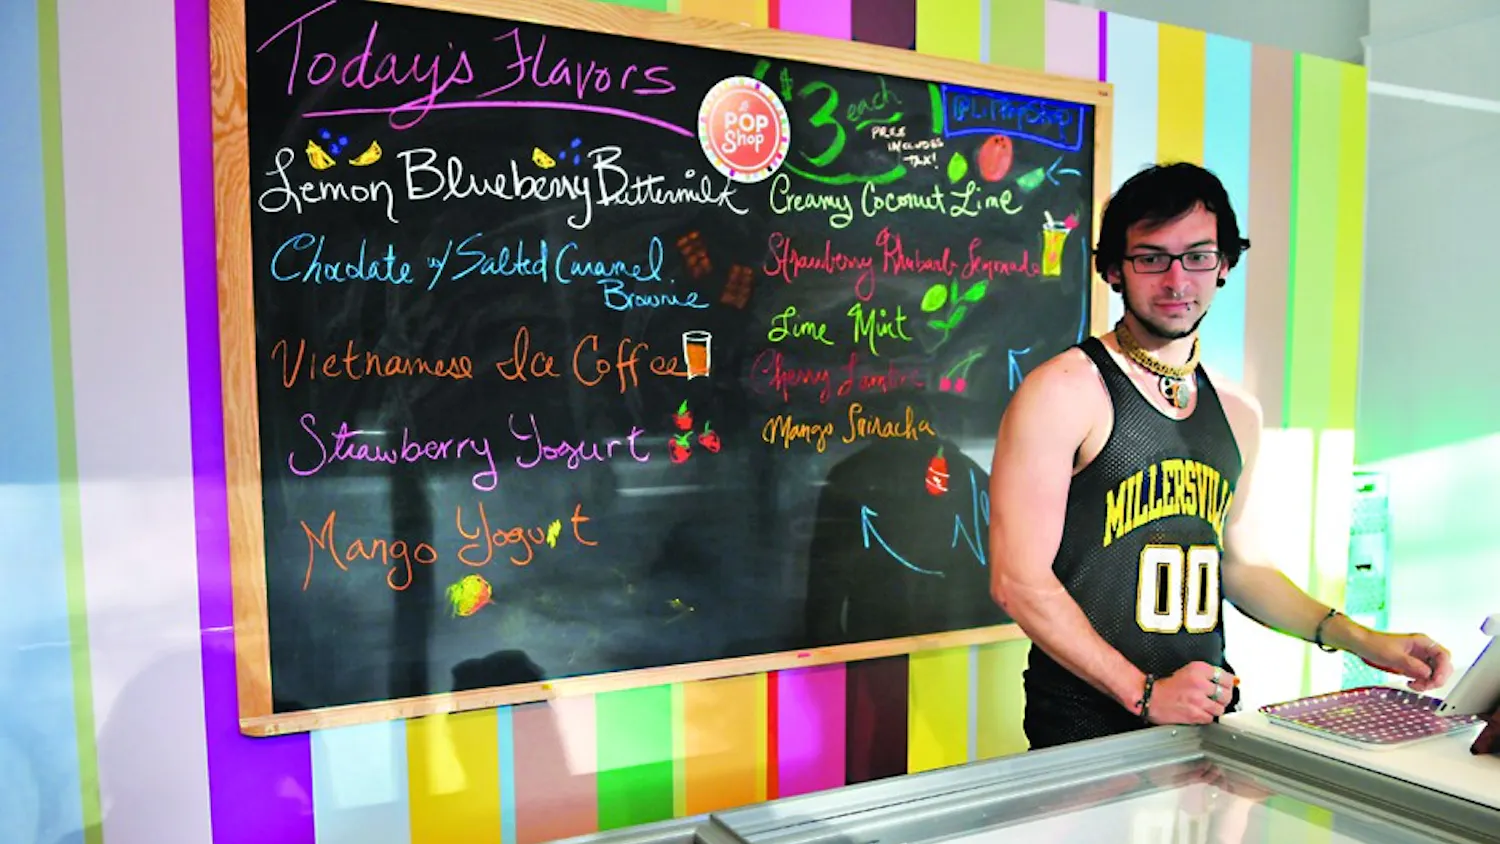 Today's Flavors
Lemon Blueberry Buttermilk
Chocolate w/ Salted Caramel
Brownie
Vietnamese Ice Coffee
Strawberry Yogurt
Mango Yogurt
POP
Shop
$3 each
PRICE
INCLUDES
TAX!
Creamy Coconut Lime
Strawberry Rhubarb Lemonade
Lime Mint
Cherry
Mango Sriracha
MILLERSVIL
00